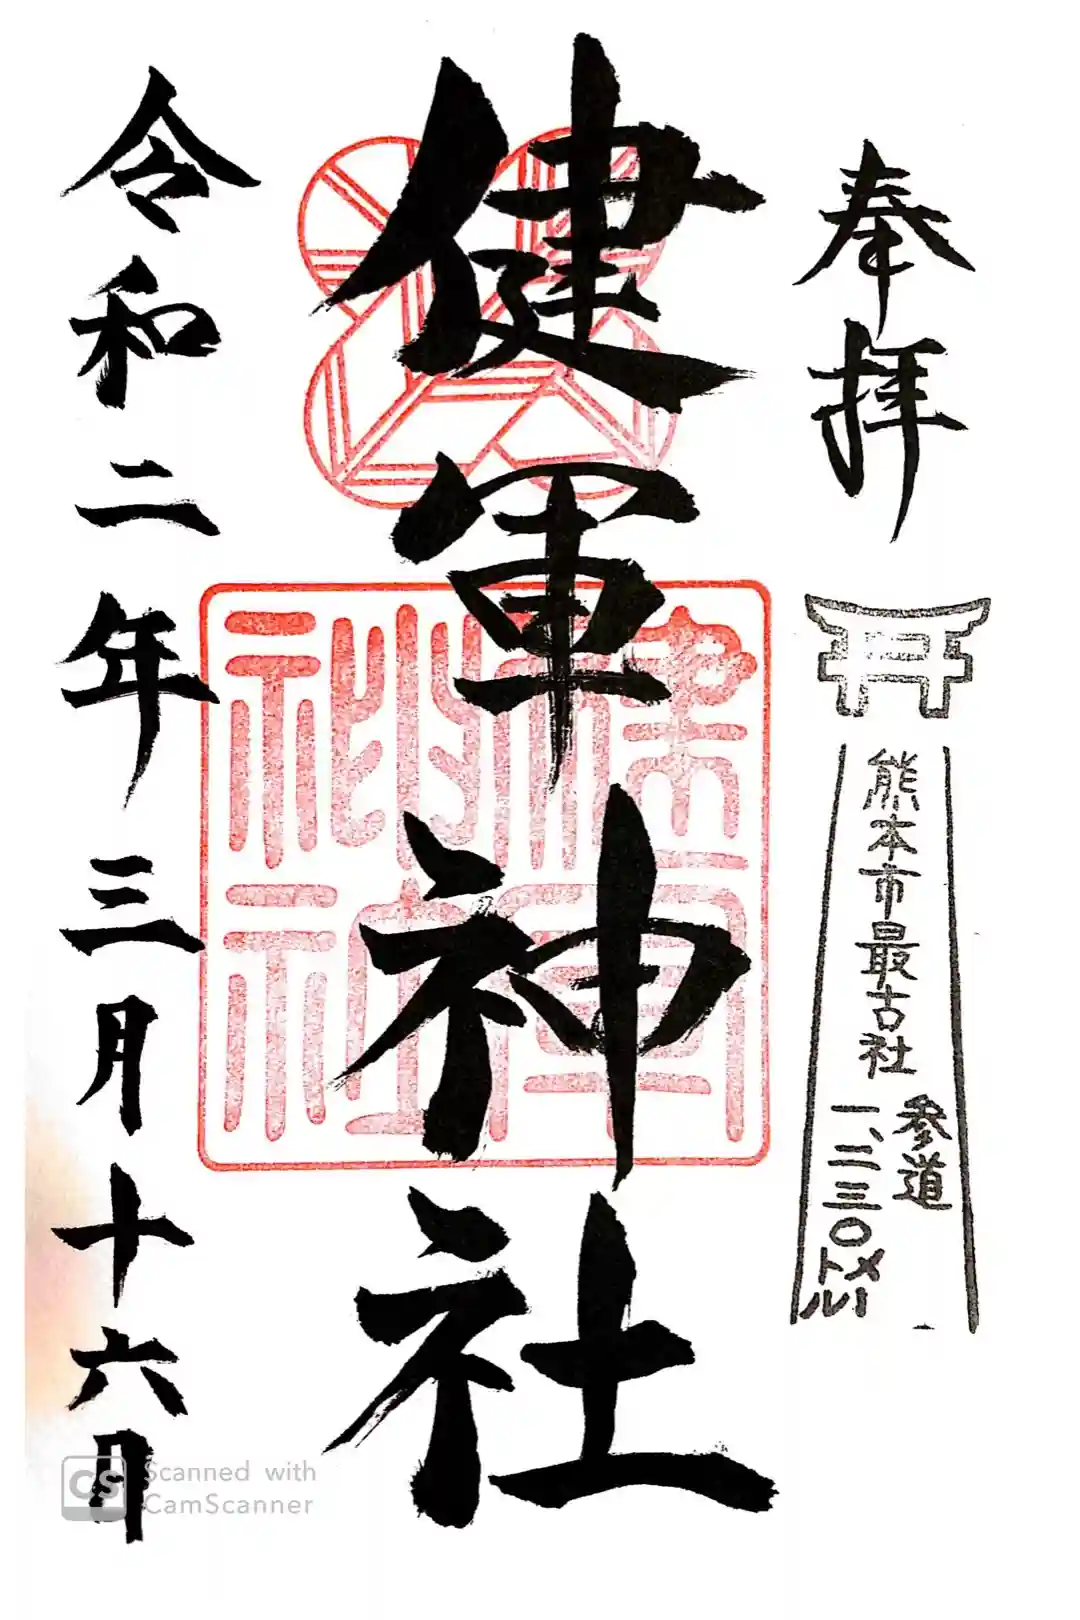 奉拝
熊本市最古社
参道
一、二三〇メートル
健軍神社
健軍
神社
令和二年三月十六日
Scanned with
CamScanner
CS